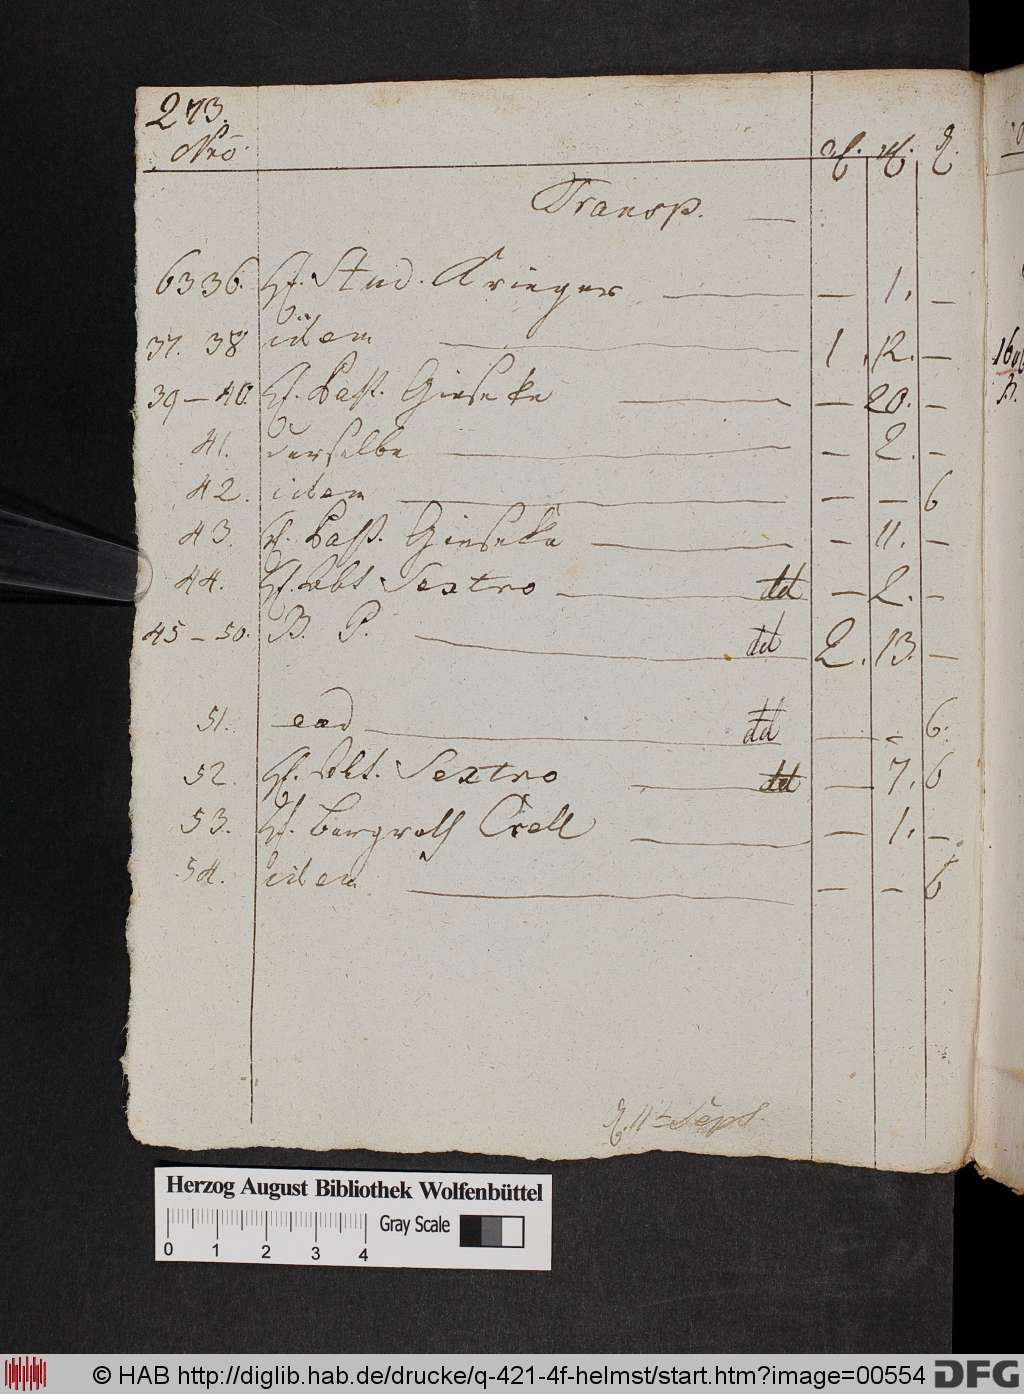 273.
Nrõ.
Transp. —
6336. H. Stud. Krieger — — 1. —
37. 38 idem — 1. 12. —
39 – 40. H. Past. Gieseke — — 20. —
41. derselbe — — 2. —
42. idem — — — 6
43. H. Past. Gieseke — — 11. —
44. H. Abt Sextro — dd — 2. —
45 – 50. B. P. — dd 2. 13. —
51. ead — dd — - 6.
52. H. Abt. Sextro — dd — 7. 6
53. H. Bergrath Crell — — 1. —
54. idem — — — 6
d. 11t Sept.
Herzog August Bibliothek Wolfenbüttel
Gray Scale
0 1 2 3 4
© HAB http://diglib.hab.de/drucke/q-421-4f-helmst/start.htm?image=00554
DFG